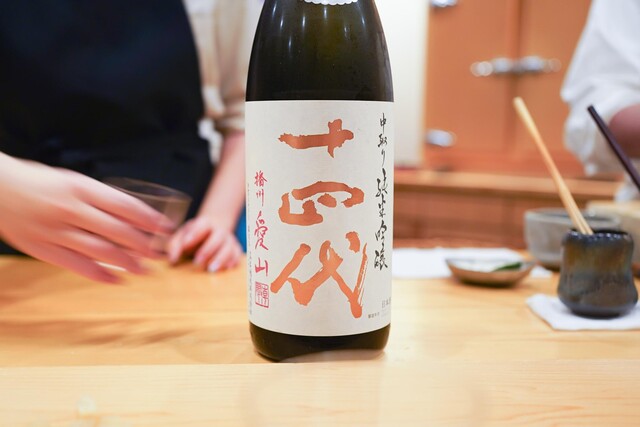 中取り純米吟醸
十四代
播州 愛山